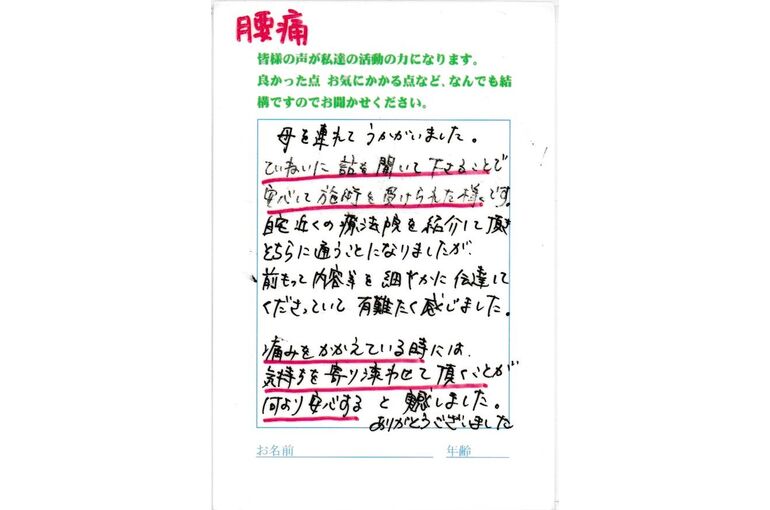 腰痛
皆様の声が私達の活動の力になります。
良かった点 お気にかかる点など、なんでも結
構ですのでお聞かせください。
母を連れてうかがいました。
ていねいに話を聞いて下さることで
安心して施術を受けられた様です。
自宅近くの療法院を紹介して頂き
そちらに通うことになりましたが、
前もって内容等を細やかに伝達して
くださっていて有難たく感じました。
痛みをかかえている時には、
気持ちを寄り添わせて頂くことが
何より安心すると実感しました。
ありがとうございました
お名前
年齢